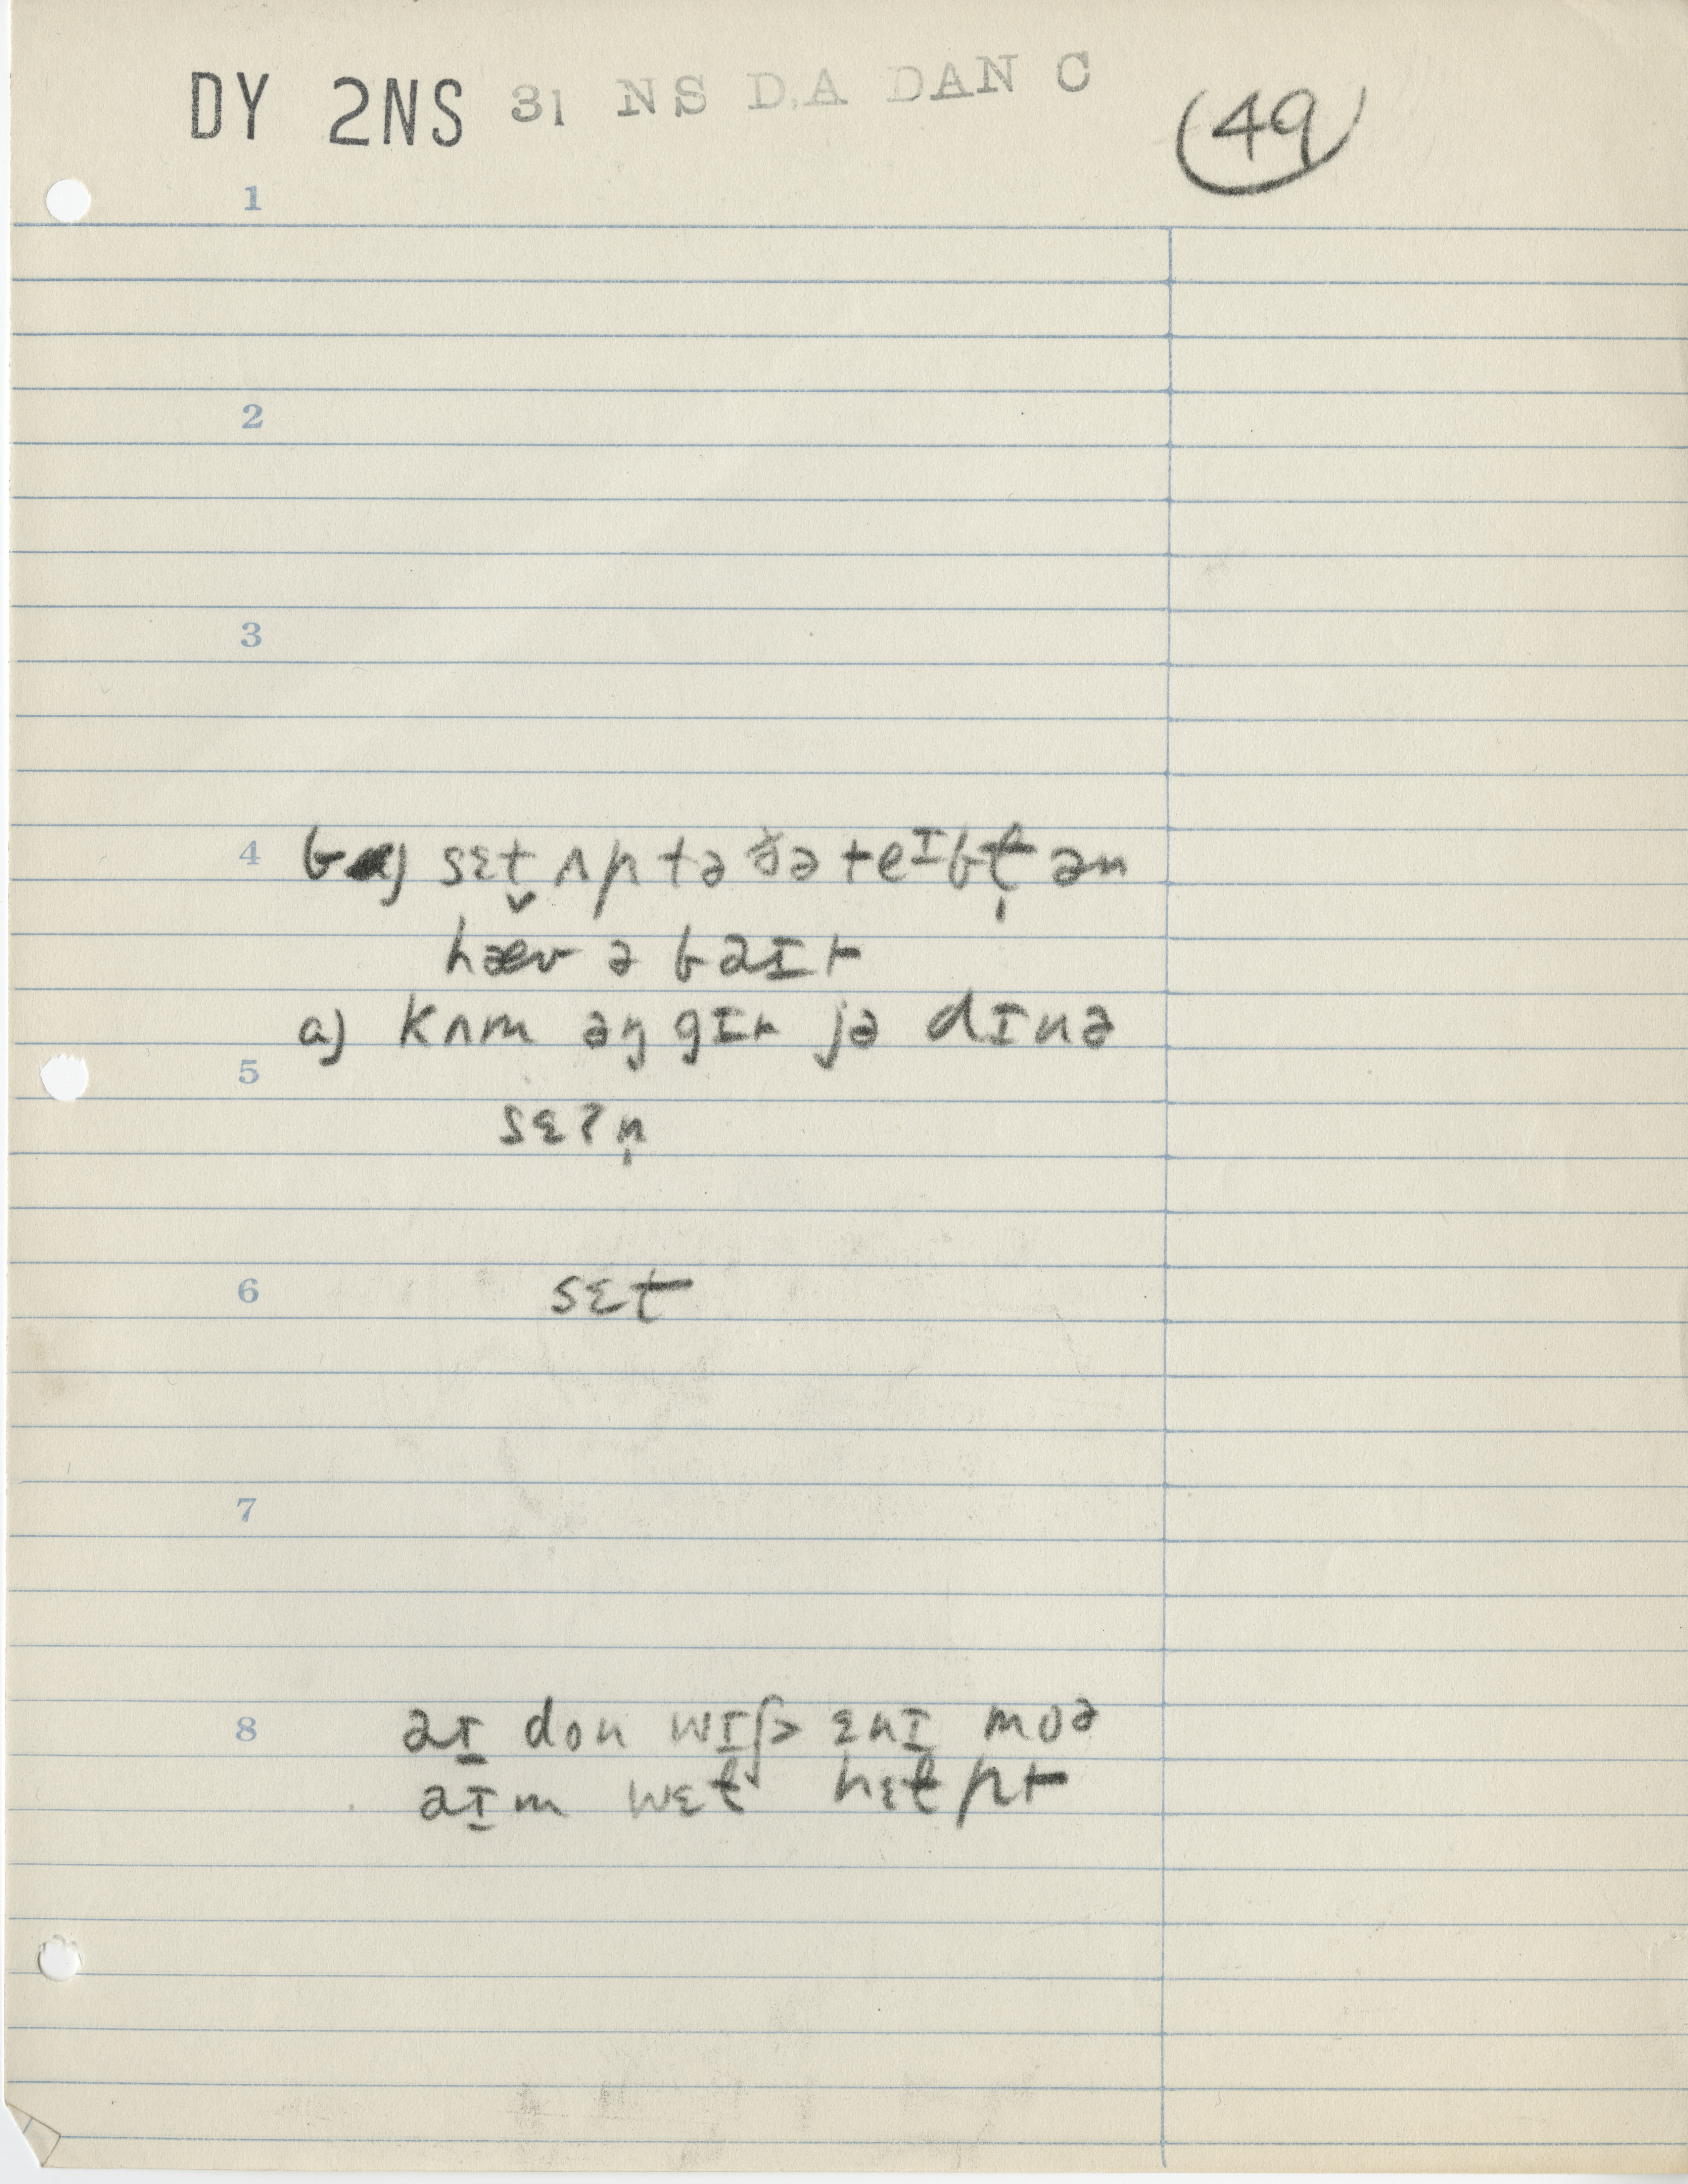 DY 2NS 31 NS D.A DAN C
(49)
1
2
3
4 b a) sɛt̬ ʌp tə ðə teɪbɫ̩ ən
hæv ə baɪt
a) kʌm əŋ gɪt jə dɪnə
5
sɛʔn̩
6 sɛt
7
8 aɪ don wɪʃ> ɛnɪ moə
aɪm wɛɫ hɛɫpt